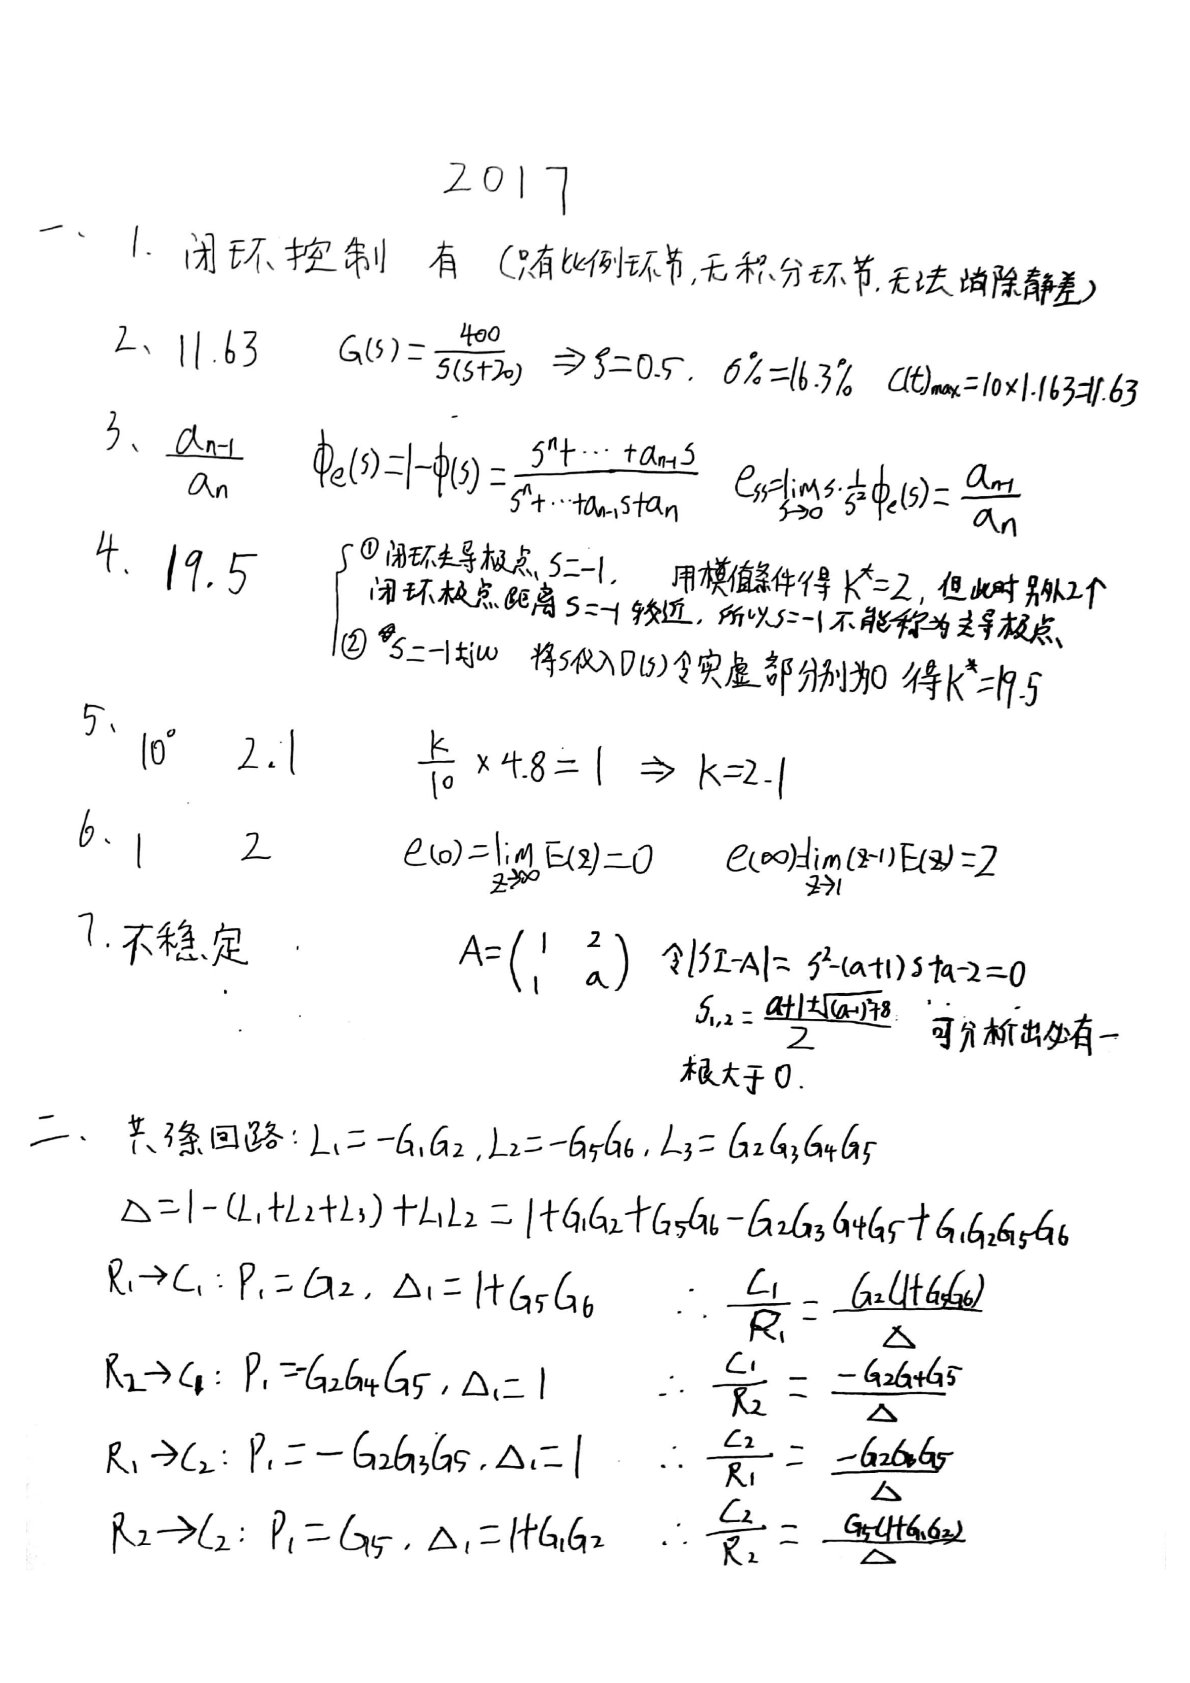 2017
一、 1. 闭环控制 有 (只有比例环节,无积分环节,无法消除静差)
2、 11.63 G(s)=400/s(s+20) ⇒ξ=0.5. σ%=16.3% C(t)max=10×1.163=11.63
3、 an-1/an Φe(s)=1-Φ(s)=(sⁿ+…+an-1s)/(sⁿ+…+an-1s+an) ess=lim s→0 s·1/s²Φe(s)=an-1/an
4、 19.5 ① 闭环主导极点 S=-1. 用模值条件得 K*=2, 但此时另外2个
闭环极点距离 S=-1 较近, 所以S=-1不能称为主导极点
② S=-1±jω 将S代入D(s)令实虚部分别为0 得K*=19.5
5、 10° 2.1 K/10 × 4.8 = 1 ⇒ K=2.1
6、 1 2 e(0)=lim z→∞ E(z)=0 e(∞)=lim z→1 (z-1)E(z)=2
7. 不稳定 A=(1 2 1 a) 令|SI-A|= S²-(a+1)S+a-2=0
S1,2=(a+1±√(a-1)²+8)/2 可分析出必有一
根大于0.
二、 共3条回路: L1=-G1G2, L2=-G5G6, L3=G2G3G4G5
Δ=1-(L1+L2+L3)+L1L2=1+G1G2+G5G6-G2G3G4G5+G1G2G5G6
R1→C1: P1=G2, Δ1=1+G5G6 ∴ C1/R1=G2(1+G5G6)/Δ
R2→C1: P1=-G2G4G5, Δ1=1 ∴ C1/R2=-G2G4G5/Δ
R1→C2: P1=-G2G3G5, Δ1=1 ∴ C2/R1=-G2G3G5/Δ
R2→C2: P1=G5, Δ1=1+G1G2 ∴ C2/R2=G5(1+G1G2)/Δ